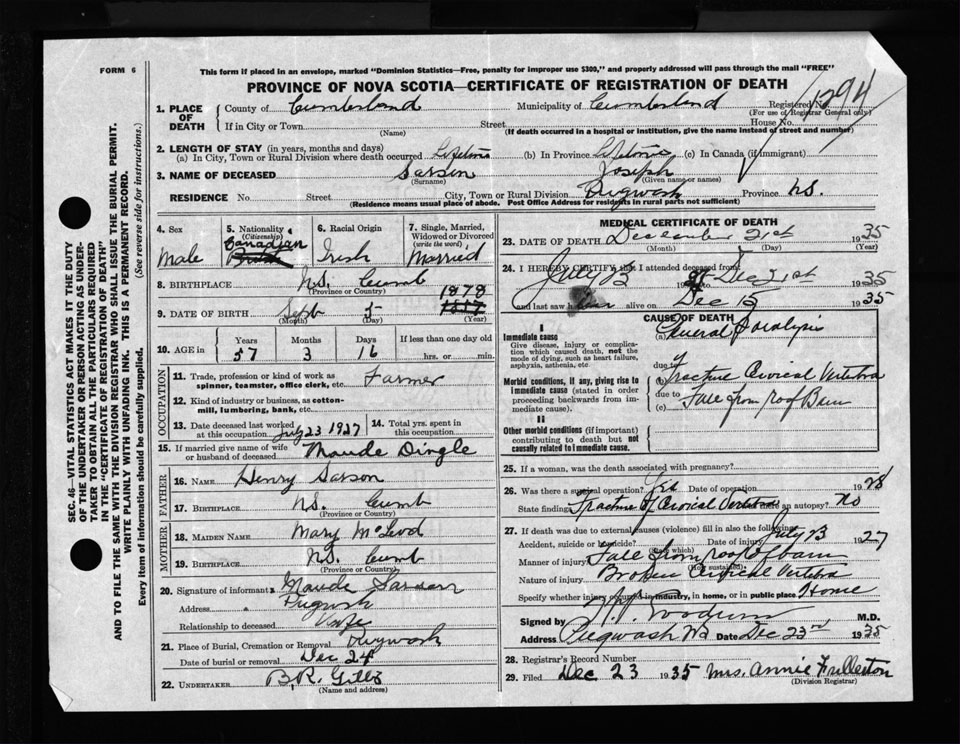 FORM 6
This form if placed in an envelope, marked "Dominion Statistics—Free, penalty for improper use $300," and properly addressed will pass through the mail "FREE"
PROVINCE OF NOVA SCOTIA—CERTIFICATE OF REGISTRATION OF DEATH
1294
1. PLACE OF DEATH County of Cumberland Municipality of Cumberland Registered No.
(For use of Registrar General only)
If in City or Town Street House No.
(Name) (If death occurred in a hospital or institution, give the name instead of street and number)
2. LENGTH OF STAY (in years, months and days)
(a) In City, Town or Rural Division where death occurred Lifetime (b) In Province Lifetime (c) In Canada (if immigrant)
3. NAME OF DECEASED Sarson Joseph
(Surname) (Given name or names)
RESIDENCE No. Street City, Town or Rural Division Pugwash Province N.S.
(Residence means usual place of abode. Post Office Address for residents in rural parts not sufficient)
4. Sex 5. Nationality (Citizenship) 6. Racial Origin 7. Single, Married, Widowed or Divorced (write the word)
Male Canadian Irish Married
8. BIRTHPLACE N.S. Cumb
(Province or Country)
9. DATE OF BIRTH Sept 5 1878
(Month) (Day) (Year)
10. AGE in Years Months Days If less than one day old
57 3 16 hrs. or min.
OCCUPATION
11. Trade, profession or kind of work as spinner, teamster, office clerk, etc. Farmer
12. Kind of industry or business, as cotton-mill, lumbering, bank, etc.
13. Date deceased last worked at this occupation July 23 1927 14. Total yrs. spent in this occupation
15. If married give name of wife or husband of deceased Maude Dingle
FATHER
16. NAME Henry Sarson
17. BIRTHPLACE N.S. Cumb
(Province or Country)
MOTHER
18. MAIDEN NAME Mary McLeod
19. BIRTHPLACE N.S. Cumb
(Province or Country)
20. Signature of informant Maude Sarson
Address Pugwash
Relationship to deceased Wife
21. Place of Burial, Cremation or Removal Pugwash
Date of burial or removal Dec 24
22. UNDERTAKER B.R.
(Name and address)
MEDICAL CERTIFICATE OF DEATH
23. DATE OF DEATH December 21st 1935
(Month) (Day) (Year)
24. I HEREBY CERTIFY that I attended deceased from
July 23 to Dec 21st 1935
and last saw h alive on Dec 12 1935
CAUSE OF DEATH
I
Immediate cause
Give disease, injury or complication which caused death, not the mode of dying, such as heart failure, asphyxia, asthenia, etc.
(a) General Paralysis
due to
Morbid conditions, if any, giving rise to immediate cause (stated in order proceeding backwards from immediate cause).
Fracture Cervical Vertebra
due to
(c) Fall from roof Barn
II
Other morbid conditions (if important) contributing to death but not causally related to immediate cause.
25. If a woman, was the death associated with pregnancy?
26. Was there a surgical operation? Yes Date of operation 1928
State findings Fracture of Cervical Vertebra Was there an autopsy? No
27. If death was due to external causes (violence) fill in also the following:
Accident, suicide or homicide? Date of injury July 23 1927
(State which)
Manner of injury Fall from roof of barn
(How sustained)
Nature of injury Broken Cervical Vertebra
Specify whether injury occurred in industry, in home, or in public place Home
Signed by M.D.
Address Pugwash NS Date Dec 23rd 1935
28. Registrar's Record Number
29. Filed Dec 23 1935 Mrs. Annie Fullerton
(Division Registrar)
SEC. 46—VITAL STATISTICS ACT MAKES IT THE DUTY
OF THE UNDERTAKER OR PERSON ACTING AS UNDERTAKER
TO OBTAIN ALL THE PARTICULARS REQUIRED
IN THE "CERTIFICATE OF REGISTRATION OF DEATH"
AND TO FILE THE SAME WITH THE DIVISION REGISTRAR WHO SHALL ISSUE THE BURIAL PERMIT.
WRITE PLAINLY WITH UNFADING INK. THIS IS A PERMANENT RECORD.
Every item of information should be carefully supplied. (See reverse side for instructions.)